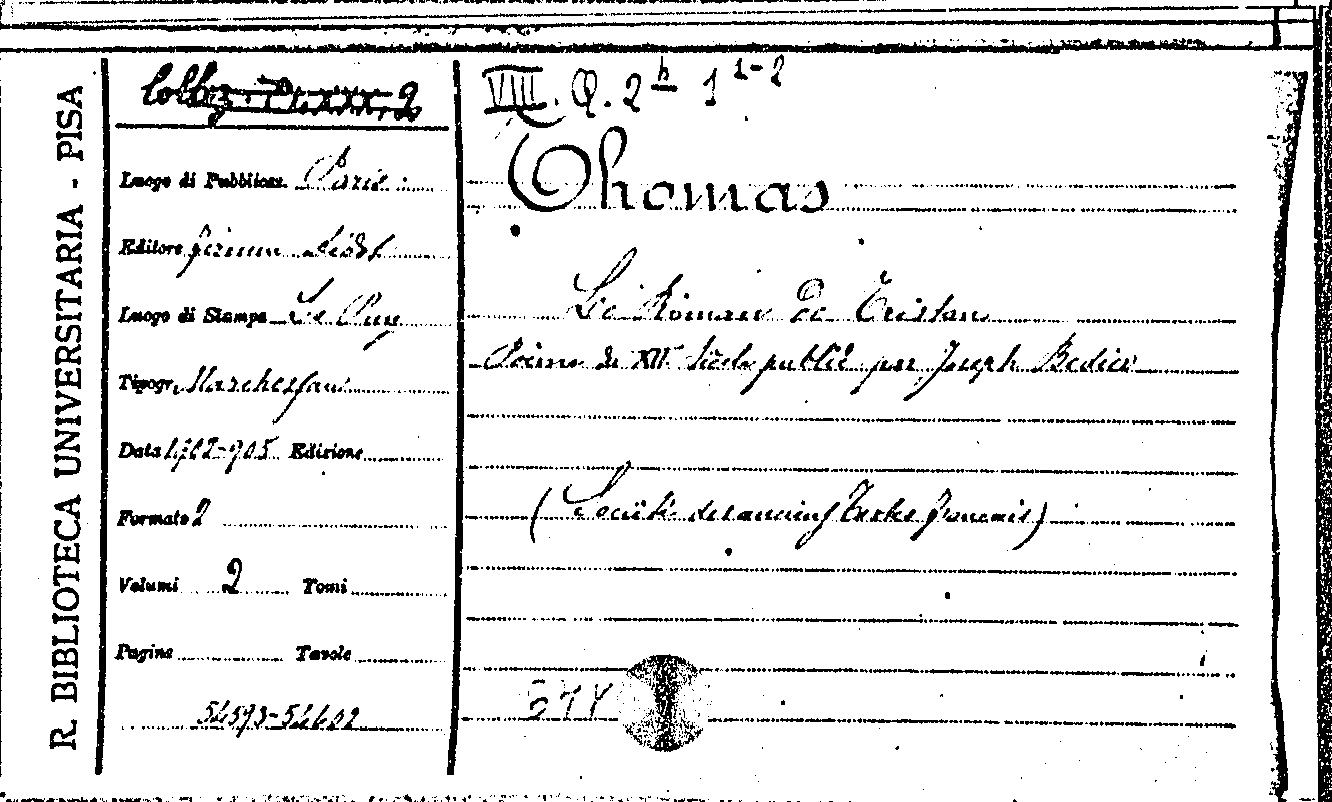 R. BIBLIOTECA UNIVERSITARIA - PISA
VIII. Q. 2 h 1 1-2
Luogo di Pubblicaz. Paris
Editore Firmin Didot
Luogo di Stampa Le Puy
Tipogr. Marchessou
Data 1902-905 Edizione
Formato 2
Volumi 2 Tomi
Pagine Tavole
Thomas
Le Roman de Tristan
Poème du XII siècle publié par Joseph Bedier
(Société des anciens Textes français)